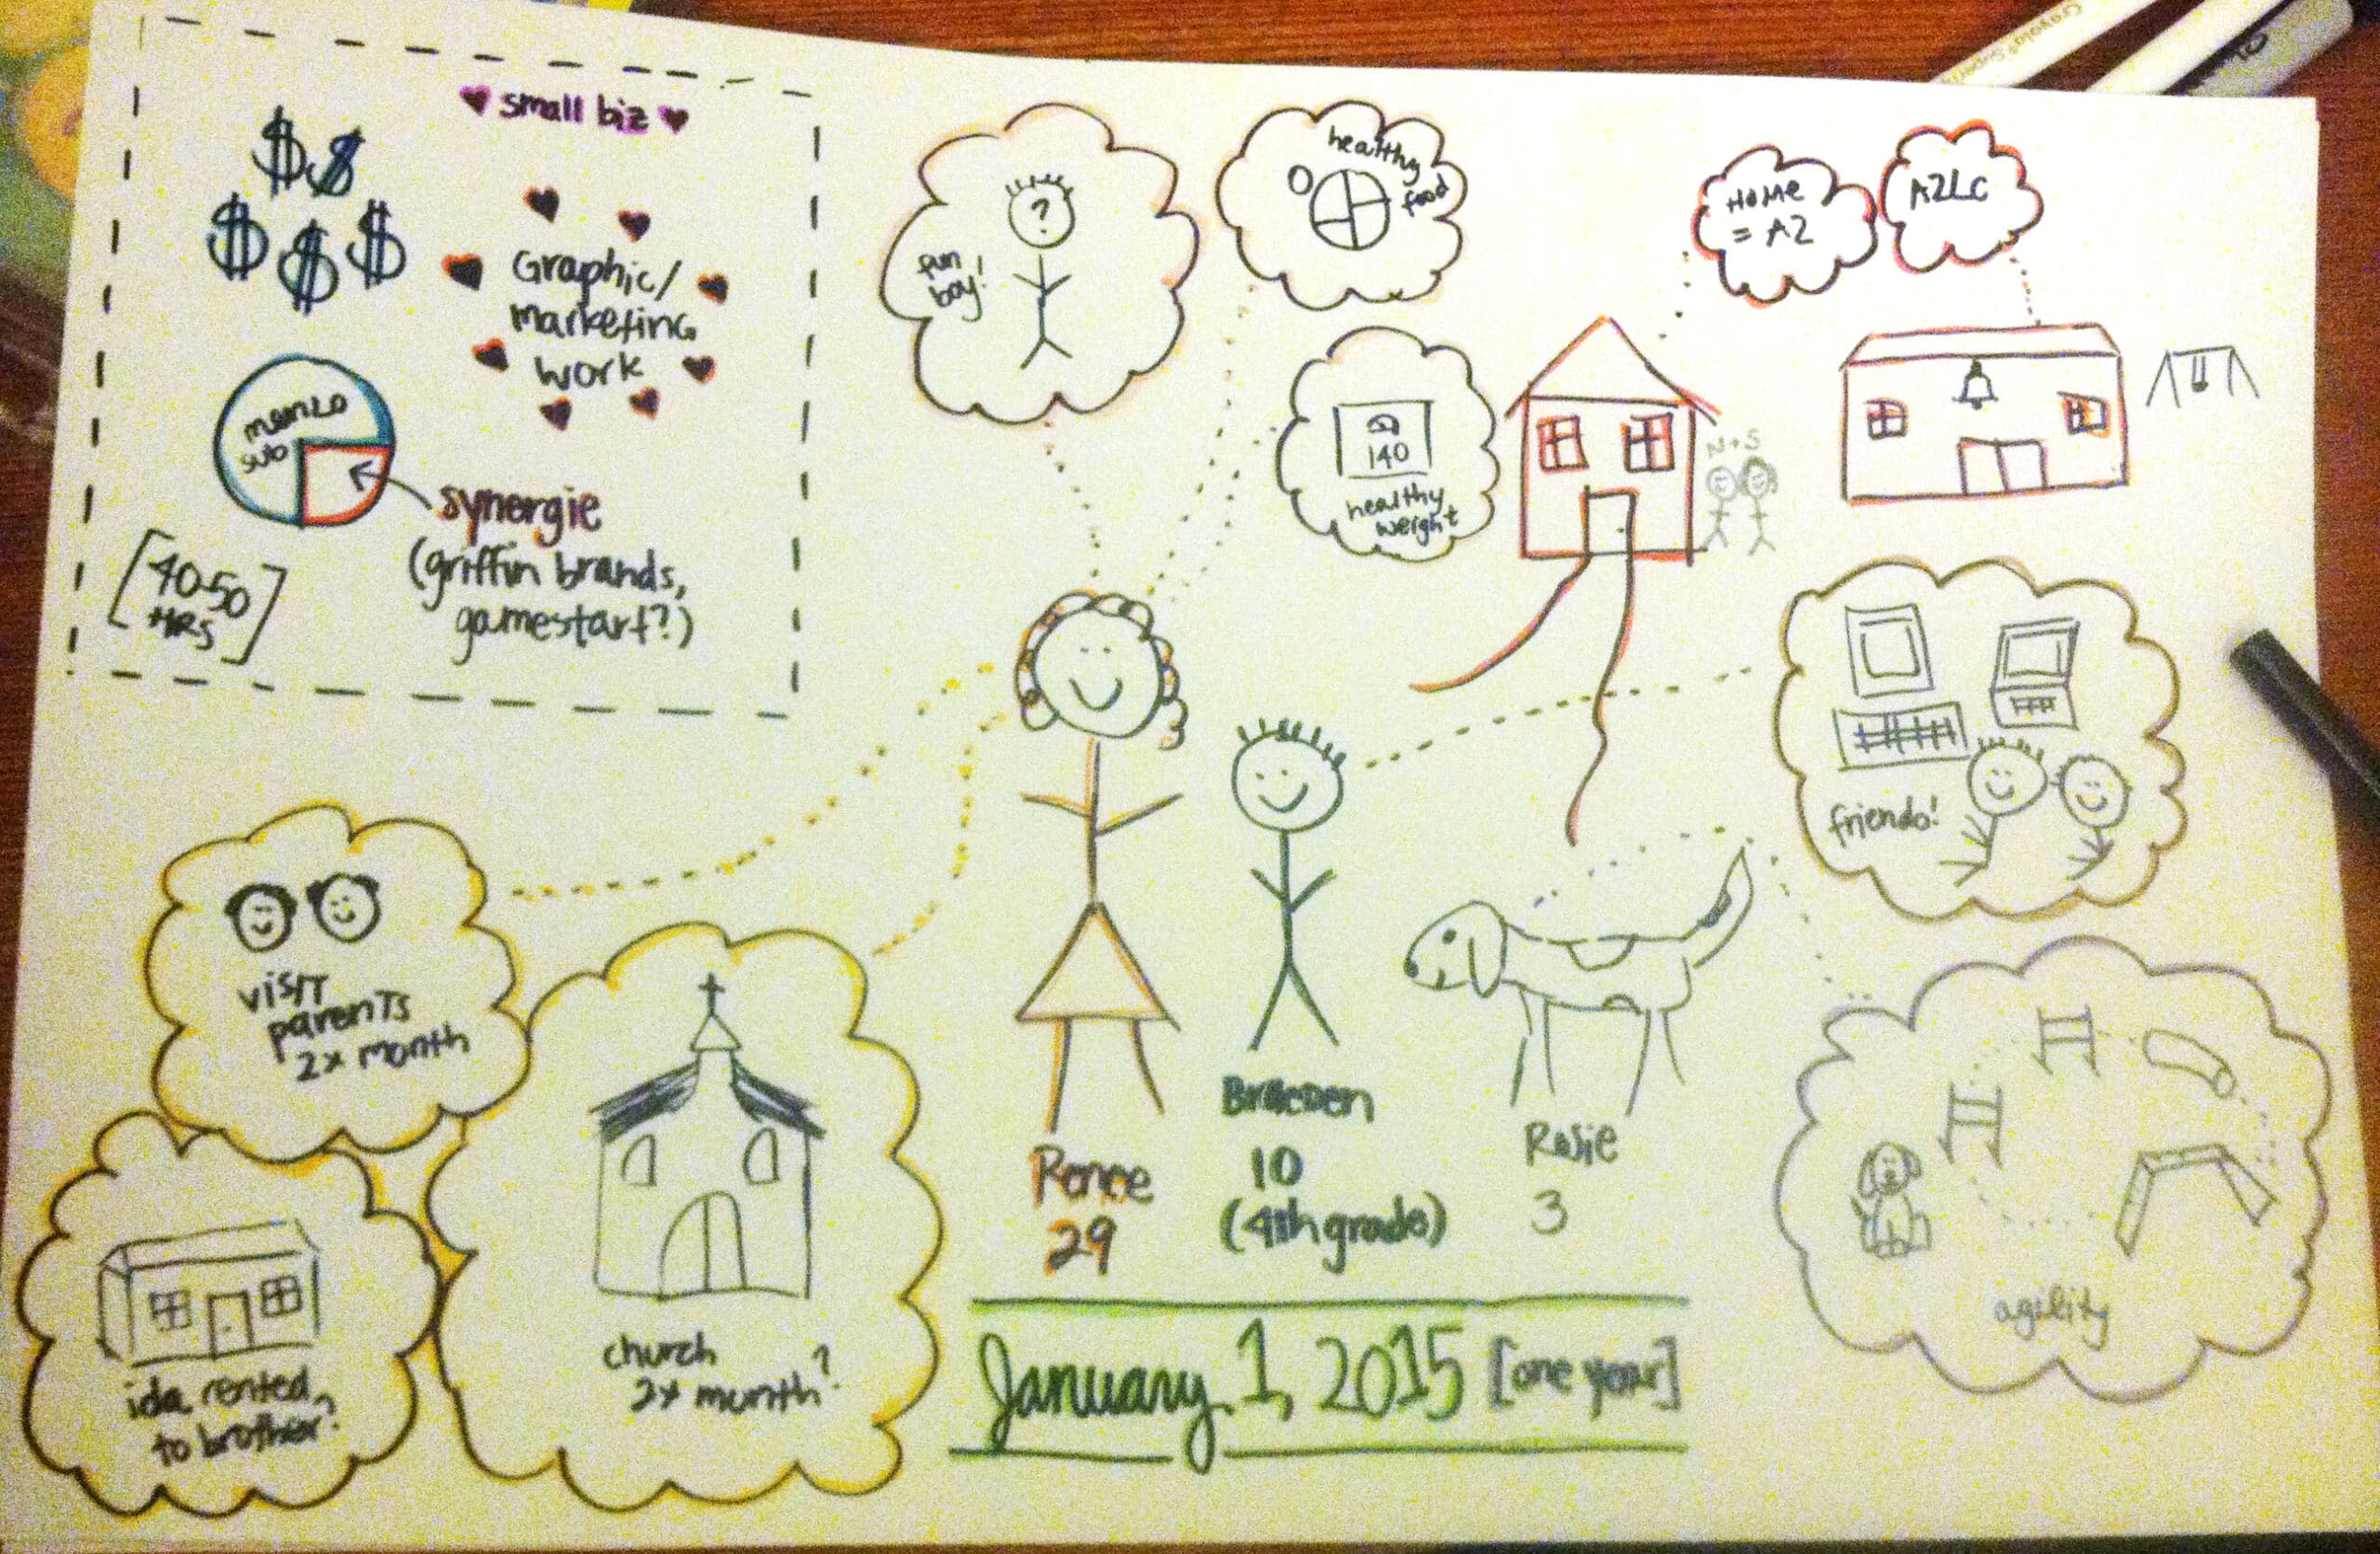 small biz
$ $
$ $ $
Graphic/
marketing
work
sub
synergie
(griffin brands,
gamestart?)
[40-50
HRS]
?
fun
boy!
healthy
food
140
healthy
weight
HOME
= A2
A2LC
N+S
friends!
visit
parents
2x month
ida rented
to brother?
church
2x month?
Renee
29
Braeden
10
(4th grade)
Rosie
3
agility
January 1, 2015 [one year]
Crayola